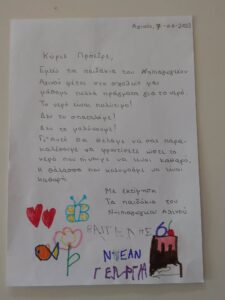 Αχινός, 7-06-2021
Κύριε Πρόεδρε,
Εμείς τα παιδάκια του Νηπιαγωγείου
Αχινού φέτος στο σχολείο μας
μάθαμε πολλά πράγματα για το νερό.
Το νερό είναι πολύτιμο!
Δεν το σπαταλάμε!
Δεν το μολύνουμε!
Γι' αυτό θα θέλαμε να σας παρα-
καλέσουμε να φροντίσετε ώστε το
νερό που πίνουμε να είναι καθαρό,
η θάλασσα που κολυμπάμε να είναι
καθαρή.
Με εκτίμηση
Τα παιδάκια του
Νηπιαγωγείου Αχινού
ΒΑΓΓΕΛΗΣ
ΝΤΕΑΝ
ΓΕΩΡΓΙΑ